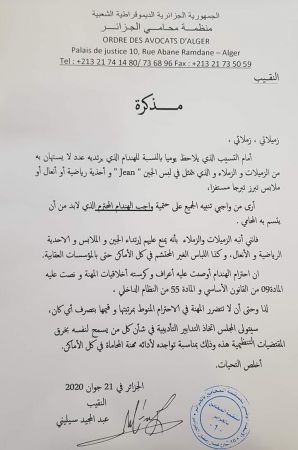 الجمهورية الجزائرية الديموقراطية الشعبية
منظمة محامي الجزائر
ORDRE DES AVOCATS D'ALGER
Palais de justice 10, Rue Abane Ramdane – Alger
Tel : +213 21 74 14 80/ 73 68 96 Fax : +213 21 73 50 59
النقيب
مذكرة
زميلاتي ، زملائي ،
أمام التسيب الذي يلاحظ يوميا بالنسبة للهندام الذي يرتديه عدد لا يستهان به
من الزميلات و الزملاء و الذي يتمثل في لبس الجين " Jean" و أحذية رياضية أو أنعال أو
ملابس تبرز تبرجا مستفزا،
أرى من واجبي تنبيه الجميع على حتمية واجب الهندام المحترم الذي لابد من أن
يتسم به المحامي.
فانني أنبه الزميلات والزملاء بأنه يمنع عليهم إرتداء الجين و الملابس و الاحذية
الرياضية و الأنعال ، وكذا اللباس الغير المحتشم في كل الأماكن حتى بالمؤسسات العقابية.
ان احترام الهندام أوصت عليه أعراف وكرسته أخلاقيات المهنة و نصت عليه
المادة09 من القانون الأساسي و المادة 55 من النظام الداخلي .
لذا وحتى أن لا تتضرر المهنة في الاحترام المنوط بمرتبتها و قيمها بتصرف أي كان،
سيتولى المجلس اتخاذ التدابير التأديبية في شأن كل من يسمح لنفسه بخرق
المقتضيات التنظيمية هذه وذلك بمناسبة تواجده لأدائه مهنة المحاماة في كل الأماكن.
أخلص التحيات.
الجزائر في 21 جوان 2020
النقيب
عبد المجيد سيليني